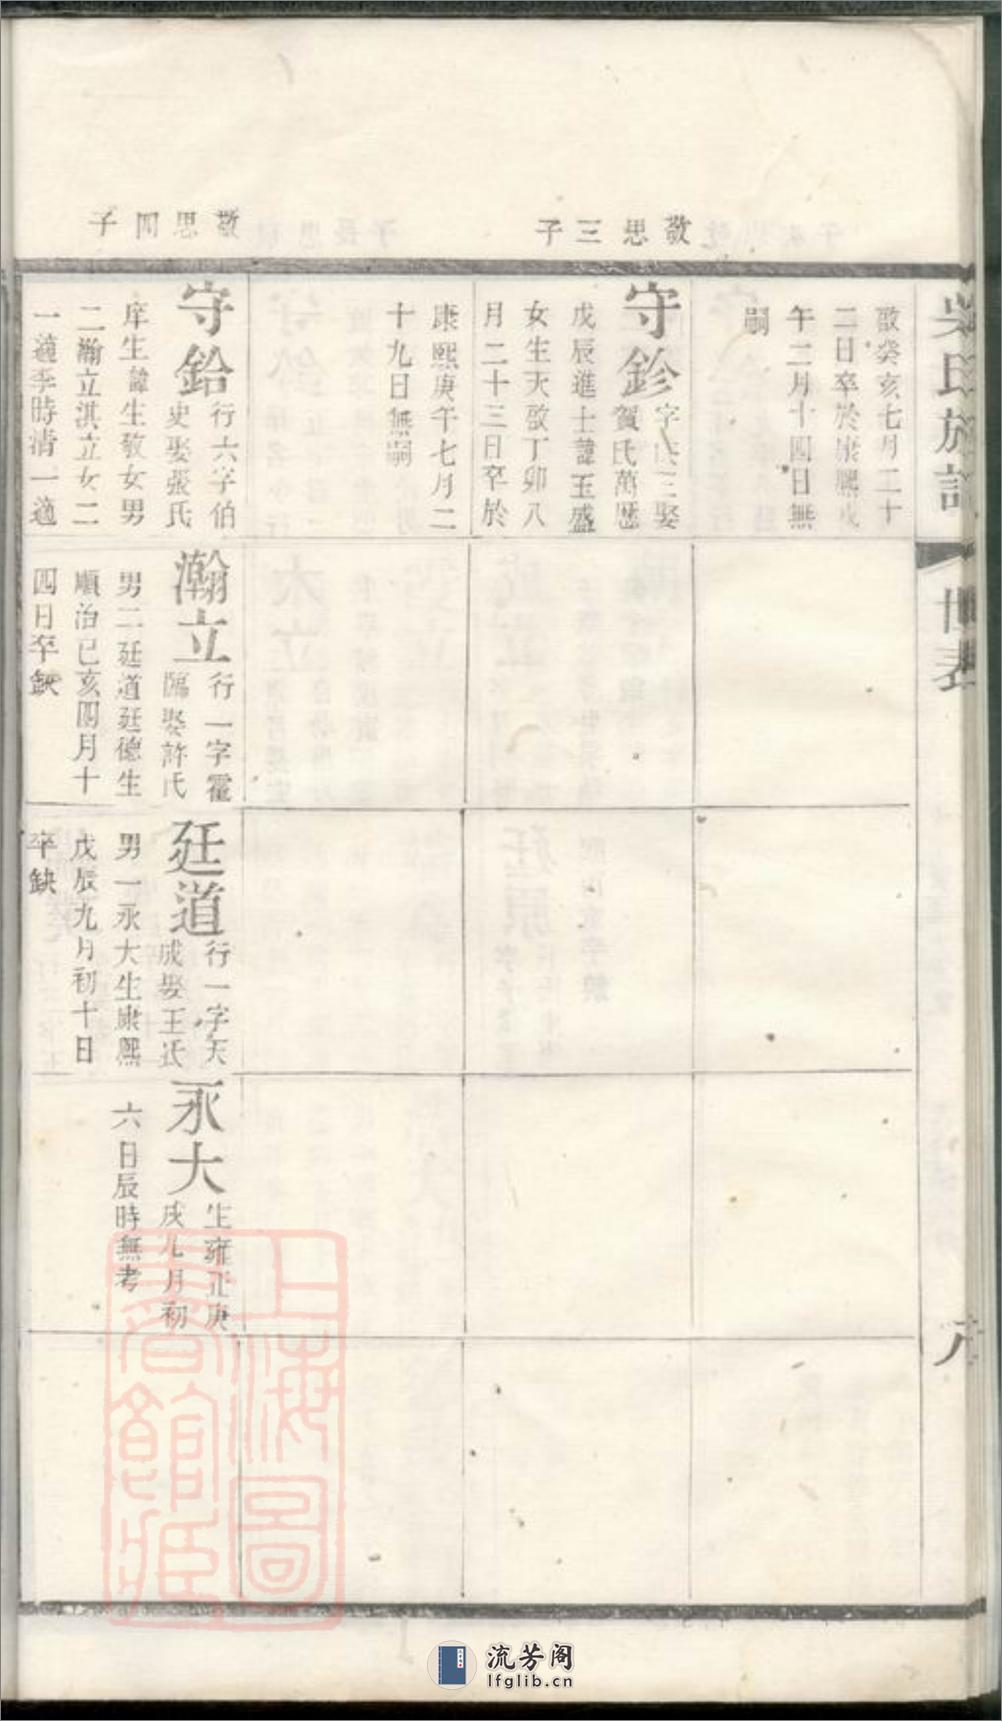 敬思三子
敬思四子
啟癸亥七月二十
二日卒於康熙戊
午二月十四日無
嗣
守鉁
三娶
賀氏萬曆
戊辰進士諱王盛
女生天啟丁卯八
月二十三日卒於
康熙庚午七月二
十九日無嗣
守鉿
行六字伯
史娶張氏
庠生諱生敎女男
二瀚立淇立女二
一適李時清一適
瀚立
行一字霍
臨娶許氏
男二廷道廷德生
順治己亥四月十
四日卒缺
廷道
行一字天
成娶王氏
男一永大生康熙
戊辰九月初十日
卒缺
永大
生雍正庚
戌九月初
六日辰時無考
氏族
世表
上海圖書館藏
流芳阁
lfglib.cn